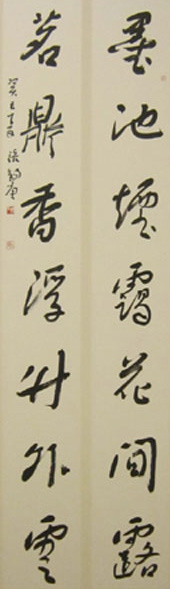 墨池煙靄花間露
茗鼎香浮竹外雲
癸巳